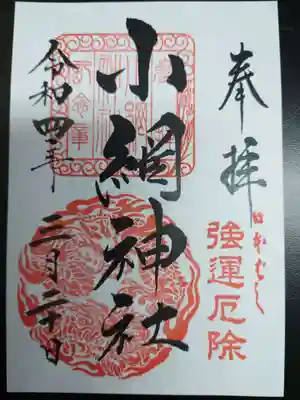 奉拝
強運厄除
小網神社
令和四年
三月二十日